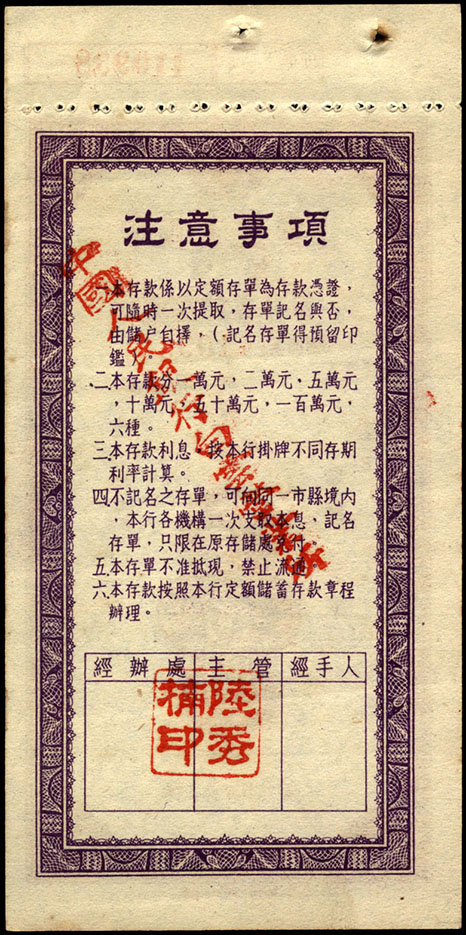 注意事項
一本存款係以定額存單為存款憑證，
可隨時一次提取，存單記名與否，
由儲户自擇，（記名存單得預留印
鑑）。
二本存款分一萬元，二萬元．五萬元
，十萬元，五十萬元，一百萬元，
六種。
三本存款利息，按本行掛牌不同存期
利率計算。
四不記名之存單，可向同一市縣境内
，本行各機構一次支取本息，記名
存單，只限在原存儲處兑付。
五本存單不准抵現，禁止流通
六本存款按照本行定額儲蓄存款章程
辦理。
經辦處
主管
經手人
陸秀
楠印
中國人民銀行